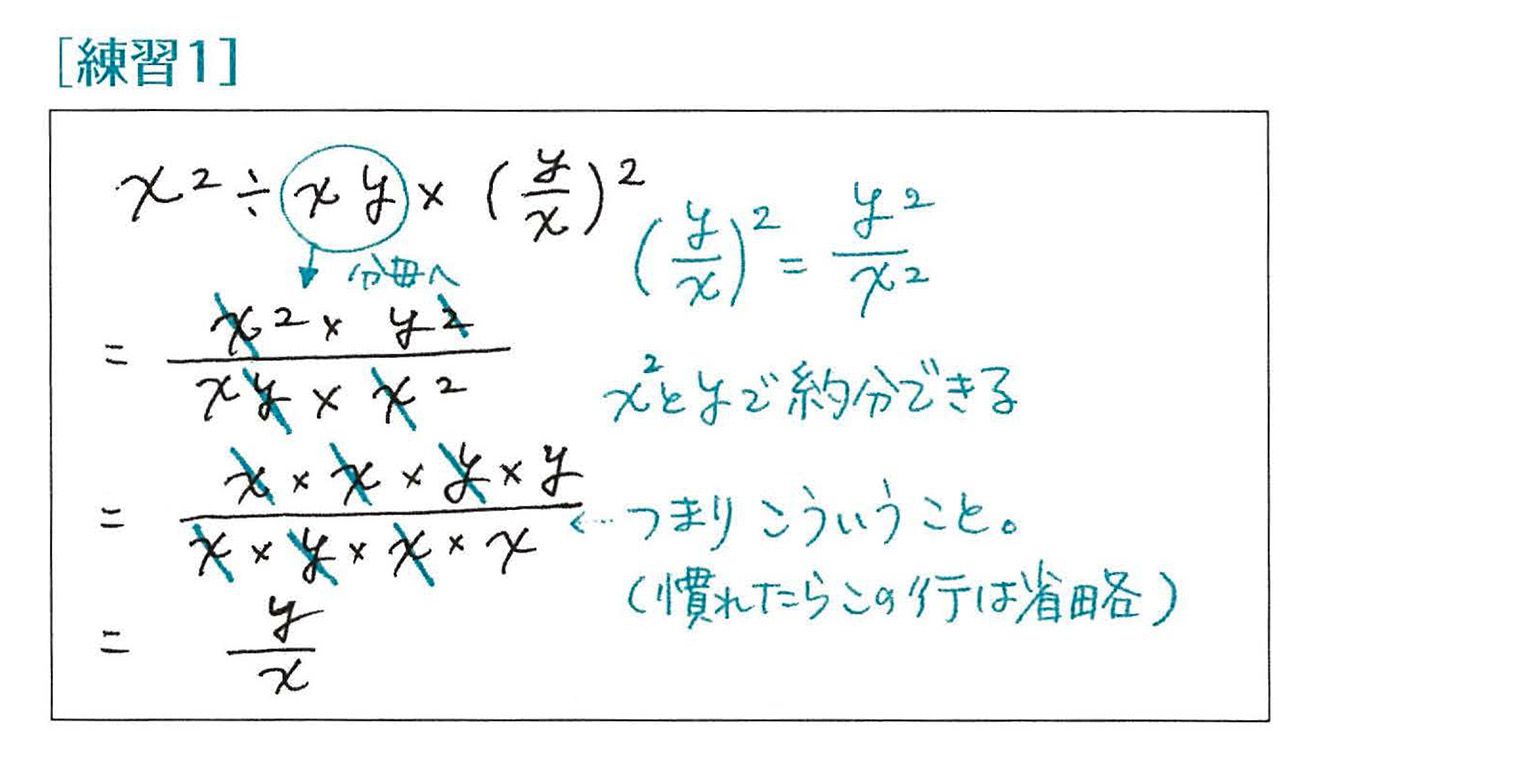 [練習1]
x² ÷ xy × (y/x)²
(y/x)² = y²/x²
分母へ
= (x² × y²)/(xy × x²)
x²とyで約分できる
= (x × x × y × y)/(x × y × x × x)
←…つまりこういうこと。
(慣れたらこの行は省略)
= y/x